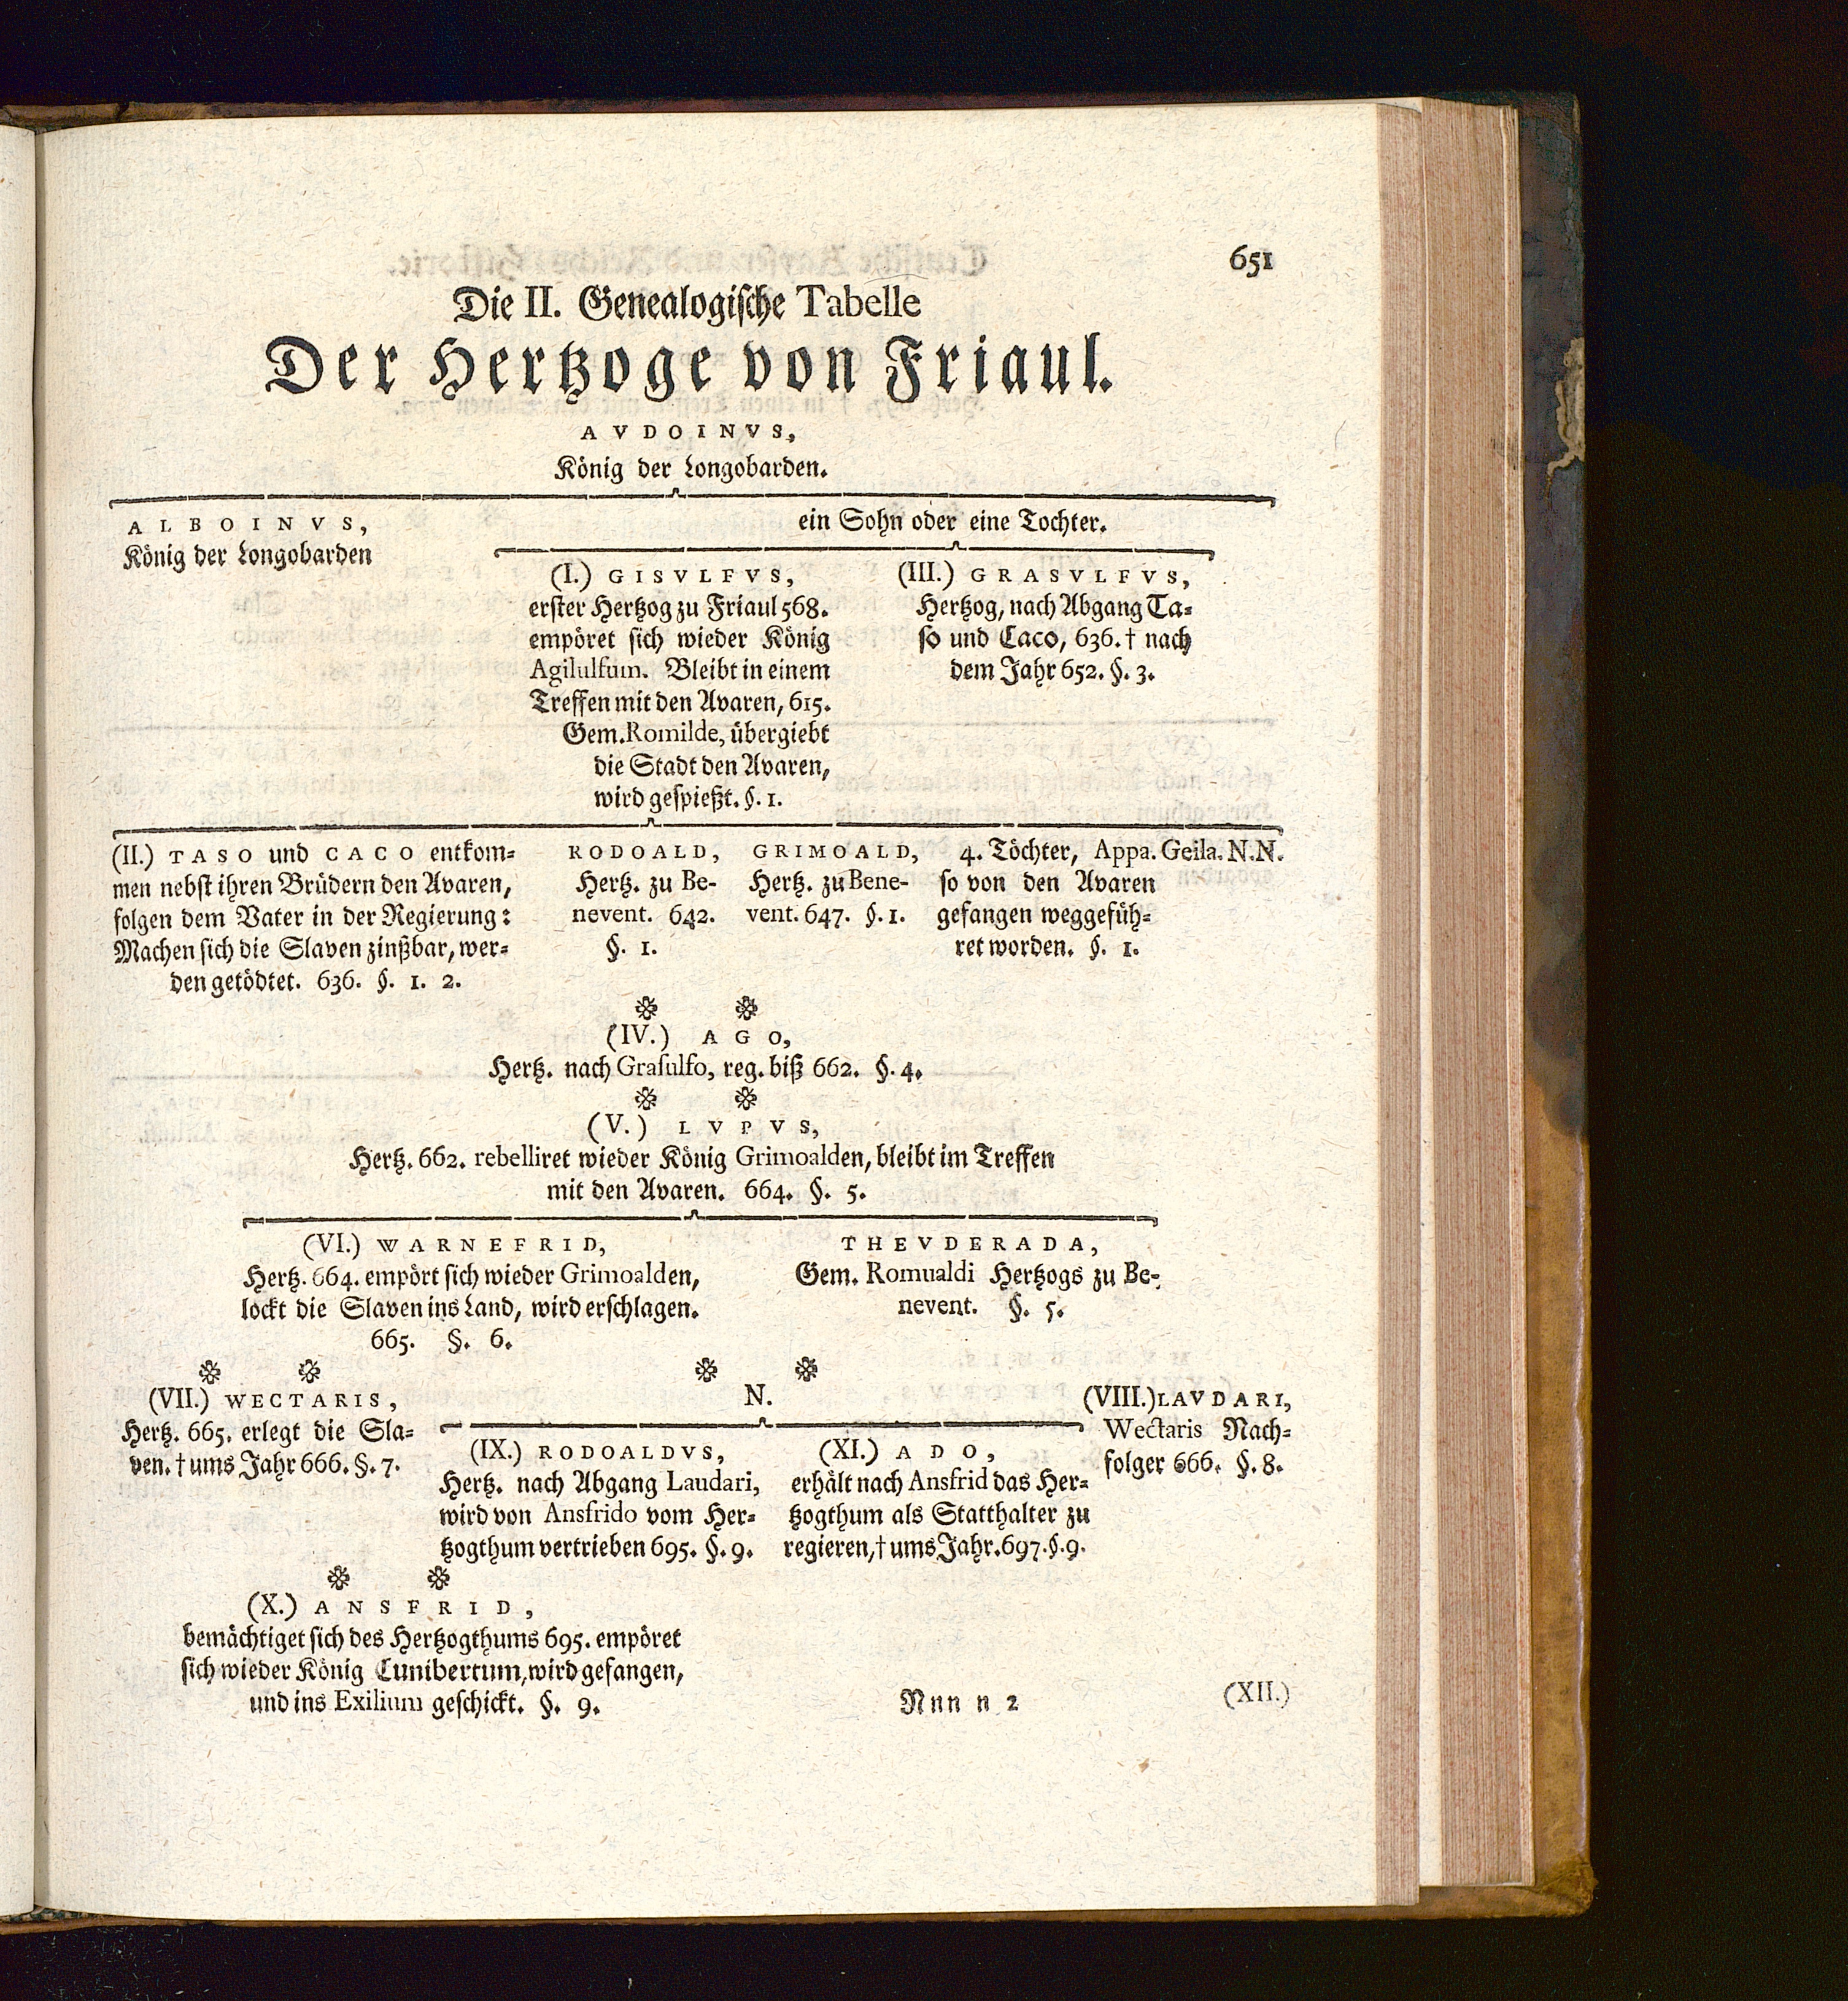 651
Die II. Genealogische Tabelle
Der Hertzoge von Friaul.
AVDOINVS,
König der Longobarden.
ALBOINVS,
König der Longobarden
ein Sohn oder eine Tochter.
(I.) GISVLFVS,
erster Hertzog zu Friaul 568.
empöret sich wieder König
Agilulfum. Bleibt in einem
Treffen mit den Avaren, 615.
Gem. Romilde, übergiebt
die Stadt den Avaren,
wird gespießt. §. 1.
(III.) GRASVLFVS,
Hertzog, nach Abgang Ta-
so und Caco, 636. † nach
dem Jahr 652. §. 3.
(II.) TASO und CACO entkom-
men nebst ihren Brüdern den Avaren,
folgen dem Vater in der Regierung:
Machen sich die Slaven zinßbar, wer-
den getödtet. 636. §. 1. 2.
RODOALD,
Hertz. zu Be-
nevent. 642.
§. 1.
GRIMOALD,
Hertz. zu Bene-
vent. 647. §. 1.
4. Töchter, Appa. Geila. N.N.
so von den Avaren
gefangen weggefüh-
ret worden. §. 1.
(IV.) AGO,
Hertz. nach Grasulfo, reg. biß 662. §. 4.
(V.) LVPVS,
Hertz. 662. rebelliret wieder König Grimoalden, bleibt im Treffen
mit den Avaren. 664. §. 5.
(VI.) WARNEFRID,
Hertz. 664. empört sich wieder Grimoalden,
lockt die Slaven ins Land, wird erschlagen.
665. §. 6.
THEVDERADA,
Gem. Romualdi Hertzogs zu Be-
nevent. §. 5.
(VII.) WECTARIS,
Hertz. 665. erlegt die Sla-
ven. † ums Jahr 666. §. 7.
N.
(IX.) RODOALDVS,
Hertz. nach Abgang Laudari,
wird von Ansfrido vom Her-
tzogthum vertrieben 695. §. 9.
(XI.) ADO,
erhält nach Ansfrid das Her-
tzogthum als Statthalter zu
regieren, † ums Jahr. 697. §. 9.
(VIII.) LAVDARI,
Wectaris Nach-
folger 666. §. 8.
(X.) ANSFRID,
bemächtiget sich des Hertzogthums 695. empöret
sich wieder König Cunibertum, wird gefangen,
und ins Exilium geschickt. §. 9.
Nnn n 2
(XII.)